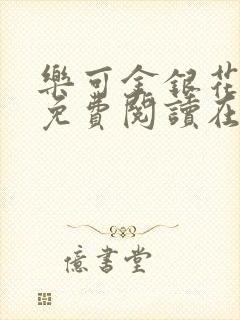 樂可金銀花
免費閱讀在
億書堂